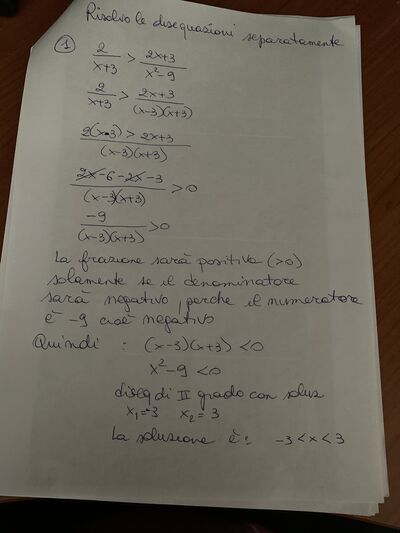 Risolvo le disequazioni separatamente
① 2/(x+3) > (2x+3)/(x²-9)
2/(x+3) > (2x+3)/((x-3)(x+3))
(2(x-3) > 2x+3)/((x-3)(x+3))
(2x-6-2x-3)/((x-3)(x+3)) >0
-9/((x-3)(x+3)) >0
La frazione sarà positiva (>0)
solamente se il denominatore
sarà negativo, perche il numeratore
è -9 cioè negativo
Quindi : (x-3)(x+3) <0
x²-9 <0
diseq di II grado con soluz
x₁=-3 x₂=3
La soluzione è: -3<x<3